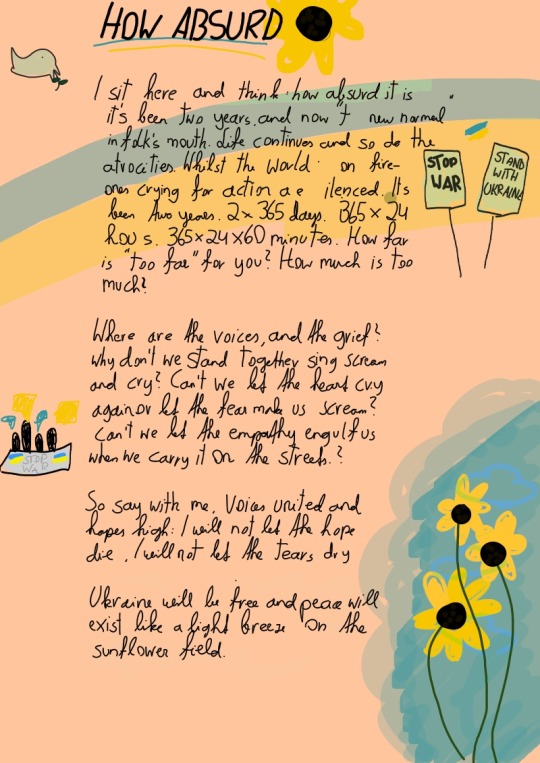 HOW ABSURD
I sit here and think how absurd it is
it's been two years and now 't new normal
in folk's mouth. Life continues and so do the
atrocities. Whilst the World on fire-
ones crying for action a e ilenced. Its
been two years. 2 x 365 days. 365 x 24
hou s. 365 x 24 x 60 minutes. How far
is "too far" for you? How much is too
much?
STOP
WAR
STAND
WITH
UKRAINE
Where are the voices, and the grief?
Why don't we stand together sing scream
and cry? Can't we let the heart cry
again or let the fear make us scream?
Can't we let the empathy engulf us
when we carry it on the streets.?
STOP
WAR
So say with me, Voices united and
hopes high: I will not let the hope
die, I will not let the tears dry
Ukraine will be free and peace will
exist like a light breeze on the
sunflower field.